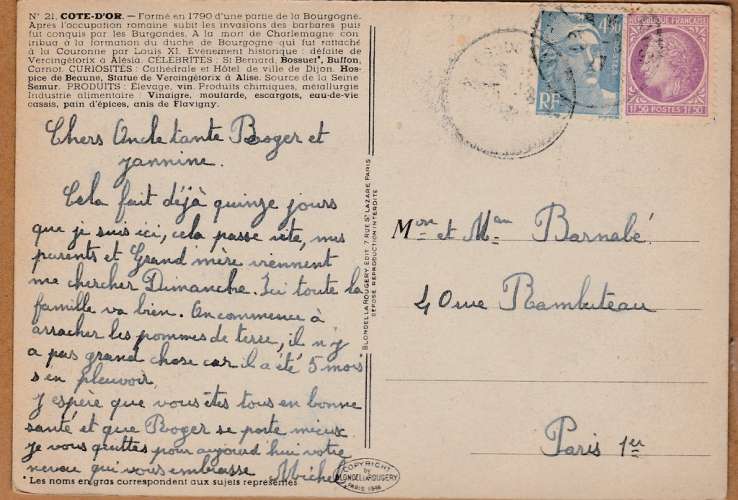 N° 21. COTE-D'OR. — Formé en 1790 d'une partie de la Bourgogne.
Après l'occupation romaine subit les invasions des barbares puis
fut conquis par les Burgondes. A la mort de Charlemagne con
tribua à la formation du duché de Bourgogne qui fut rattaché
à la Couronne par Louis XI. Evénement historique : défaite de
Vercingétorix à Alésia. CÉLÉBRITÉS : St Bernard, Bossuet*, Buffon,
Carnot. CURIOSITÉS : Cathédrale et Hôtel de ville de Dijon. Hos-
pice de Beaune, Statue de Vercingétorix à Alise. Source de la Seine
Semur. PRODUITS : Élevage, vin. Produits chimiques, métallurgie
Industrie alimentaire : Vinaigre, moutarde, escargots, eau-de-vie
cassis, pain d'épices, anis de Flavigny.
Chers Oncle tante Roger et
Jannine.
Cela fait déjà quinze jours
que je suis ici, cela passe vite, mes
parents et Grand mère viennent
me chercher Dimanche. Ici toute la
famille va bien. On commence à
arracher les pommes de terre, il n'y
a pas grand chose car il a été 5 mois
s'en pleuvoir.
J'espère que vous êtes tous en bonne
santé et que Roger se porte mieux.
Je vous quittes pour aujourd'hui votre
neveu qui vous embrasse Michel
*Les noms en gras correspondent aux sujets représentés
BLONDEL LA ROUGERY, EDIT. 7 RUE ST LAZARE PARIS
DÉPOSÉ REPRODUCTION INTERDITE
COPYRIGHT
by
BLONDEL LA ROUGERY
PARIS 1945
4f50
RF
REPUBLIQUE FRANCAISE
1f50 POSTES 1f50
Mon et Mam Barnabé
40 rue Rambuteau
Paris 1er